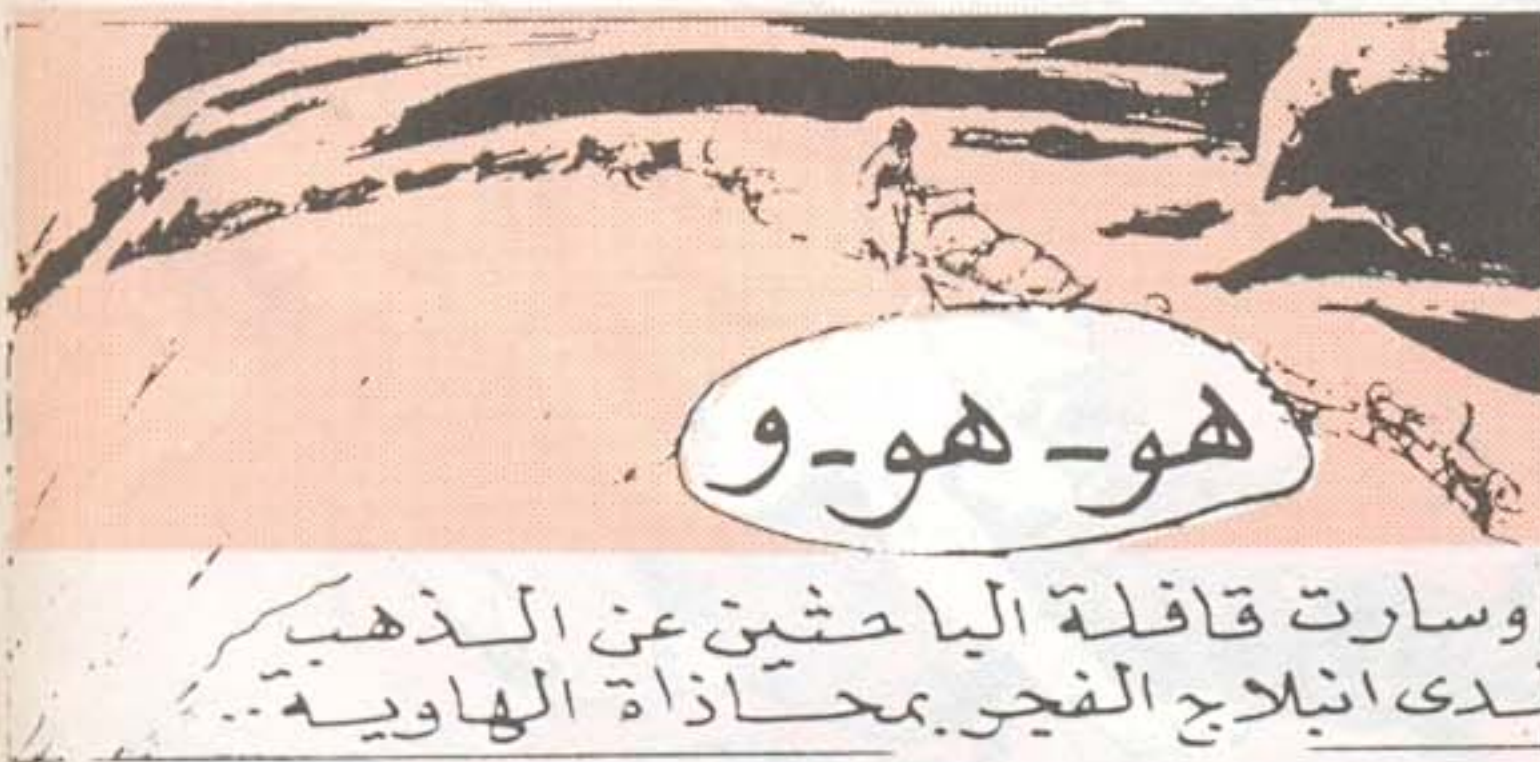 هو - هو - و
وسارت قافلة الباحثين عن الذهب
لدى انبلاج الفجر بمحاذاة الهاوية..